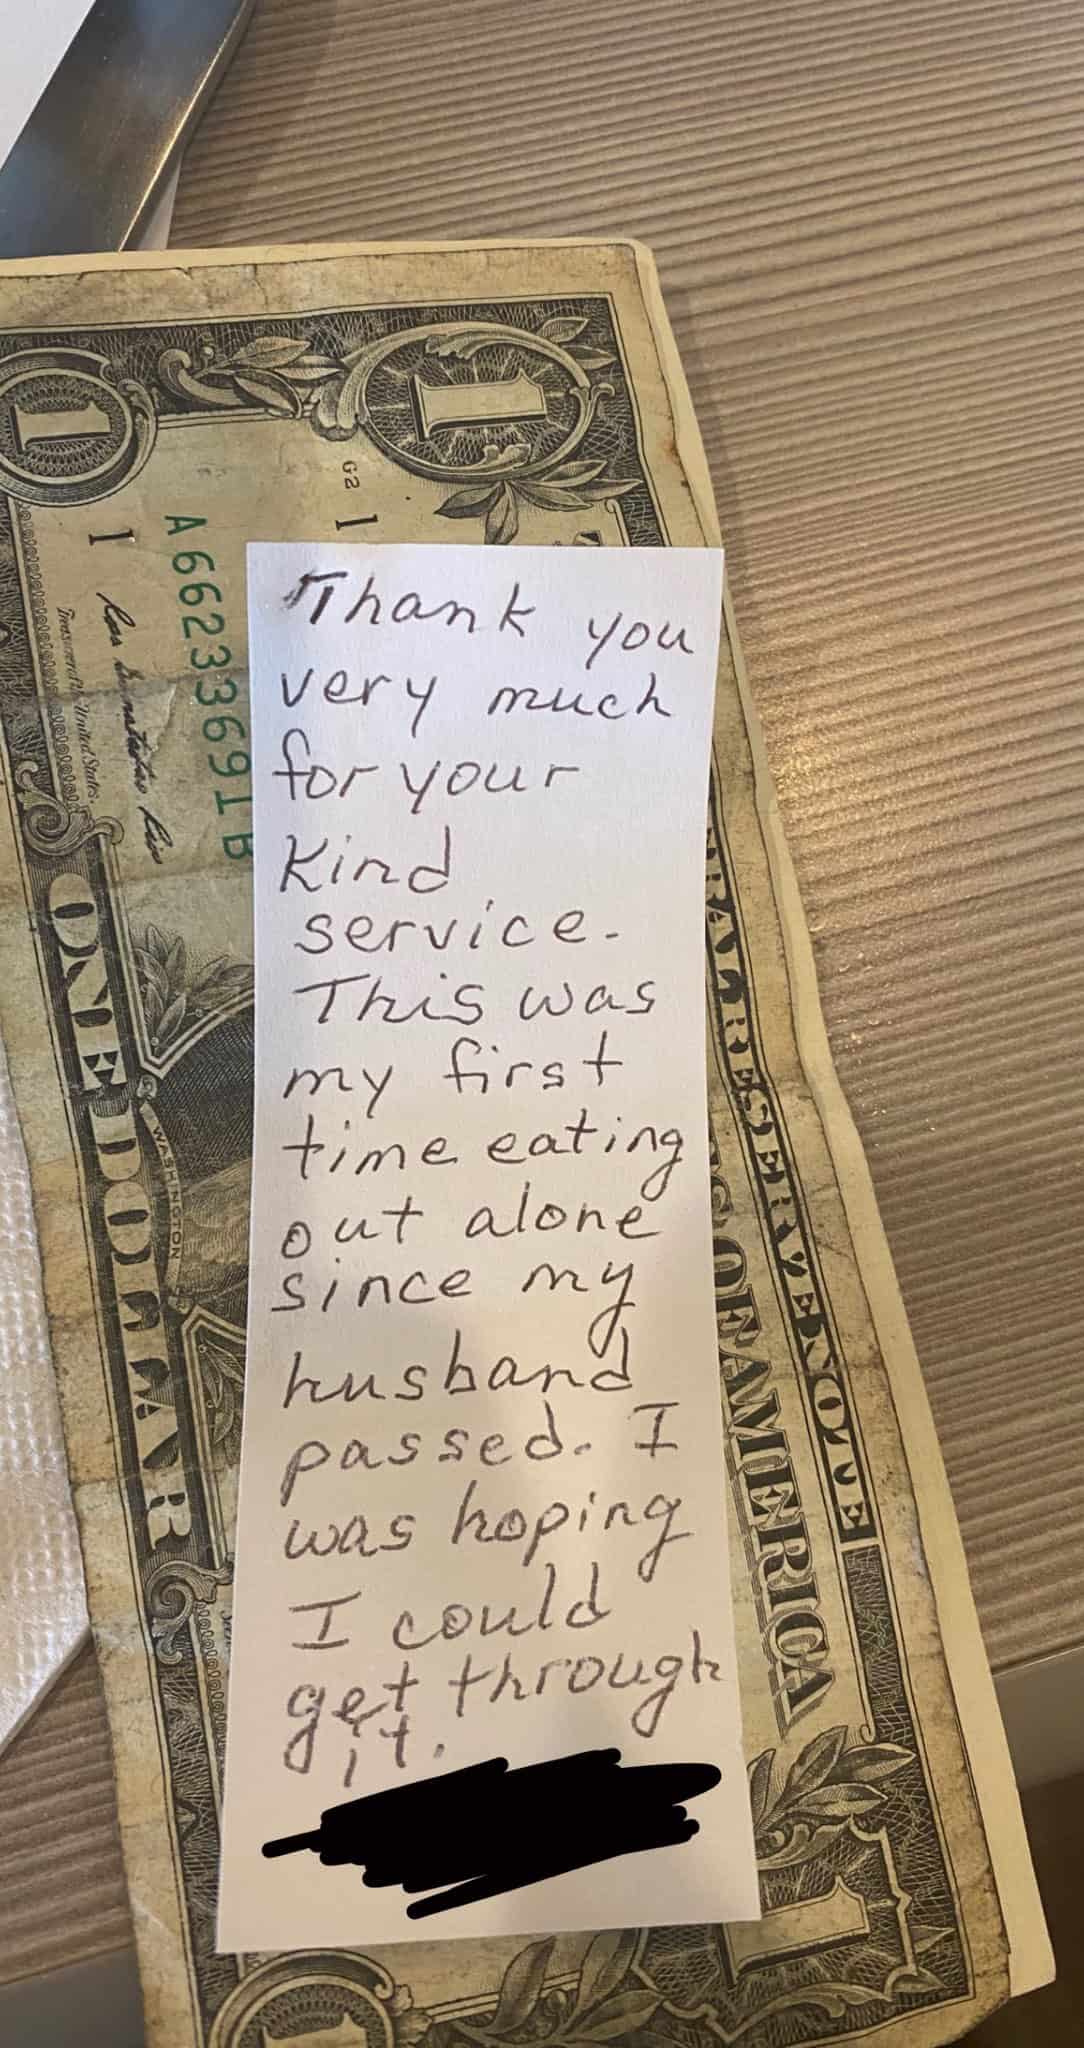 Thank you
very much
for your
kind
service.
This was
my first
time eating
out alone
since my
husband
passed. I
was hoping
I could
get through
it.
1
1
G2 1
A 66233691 B
1
Treasurer of the United States.
WASHINGTON
ONE DOLLAR
OF AMERICA
1